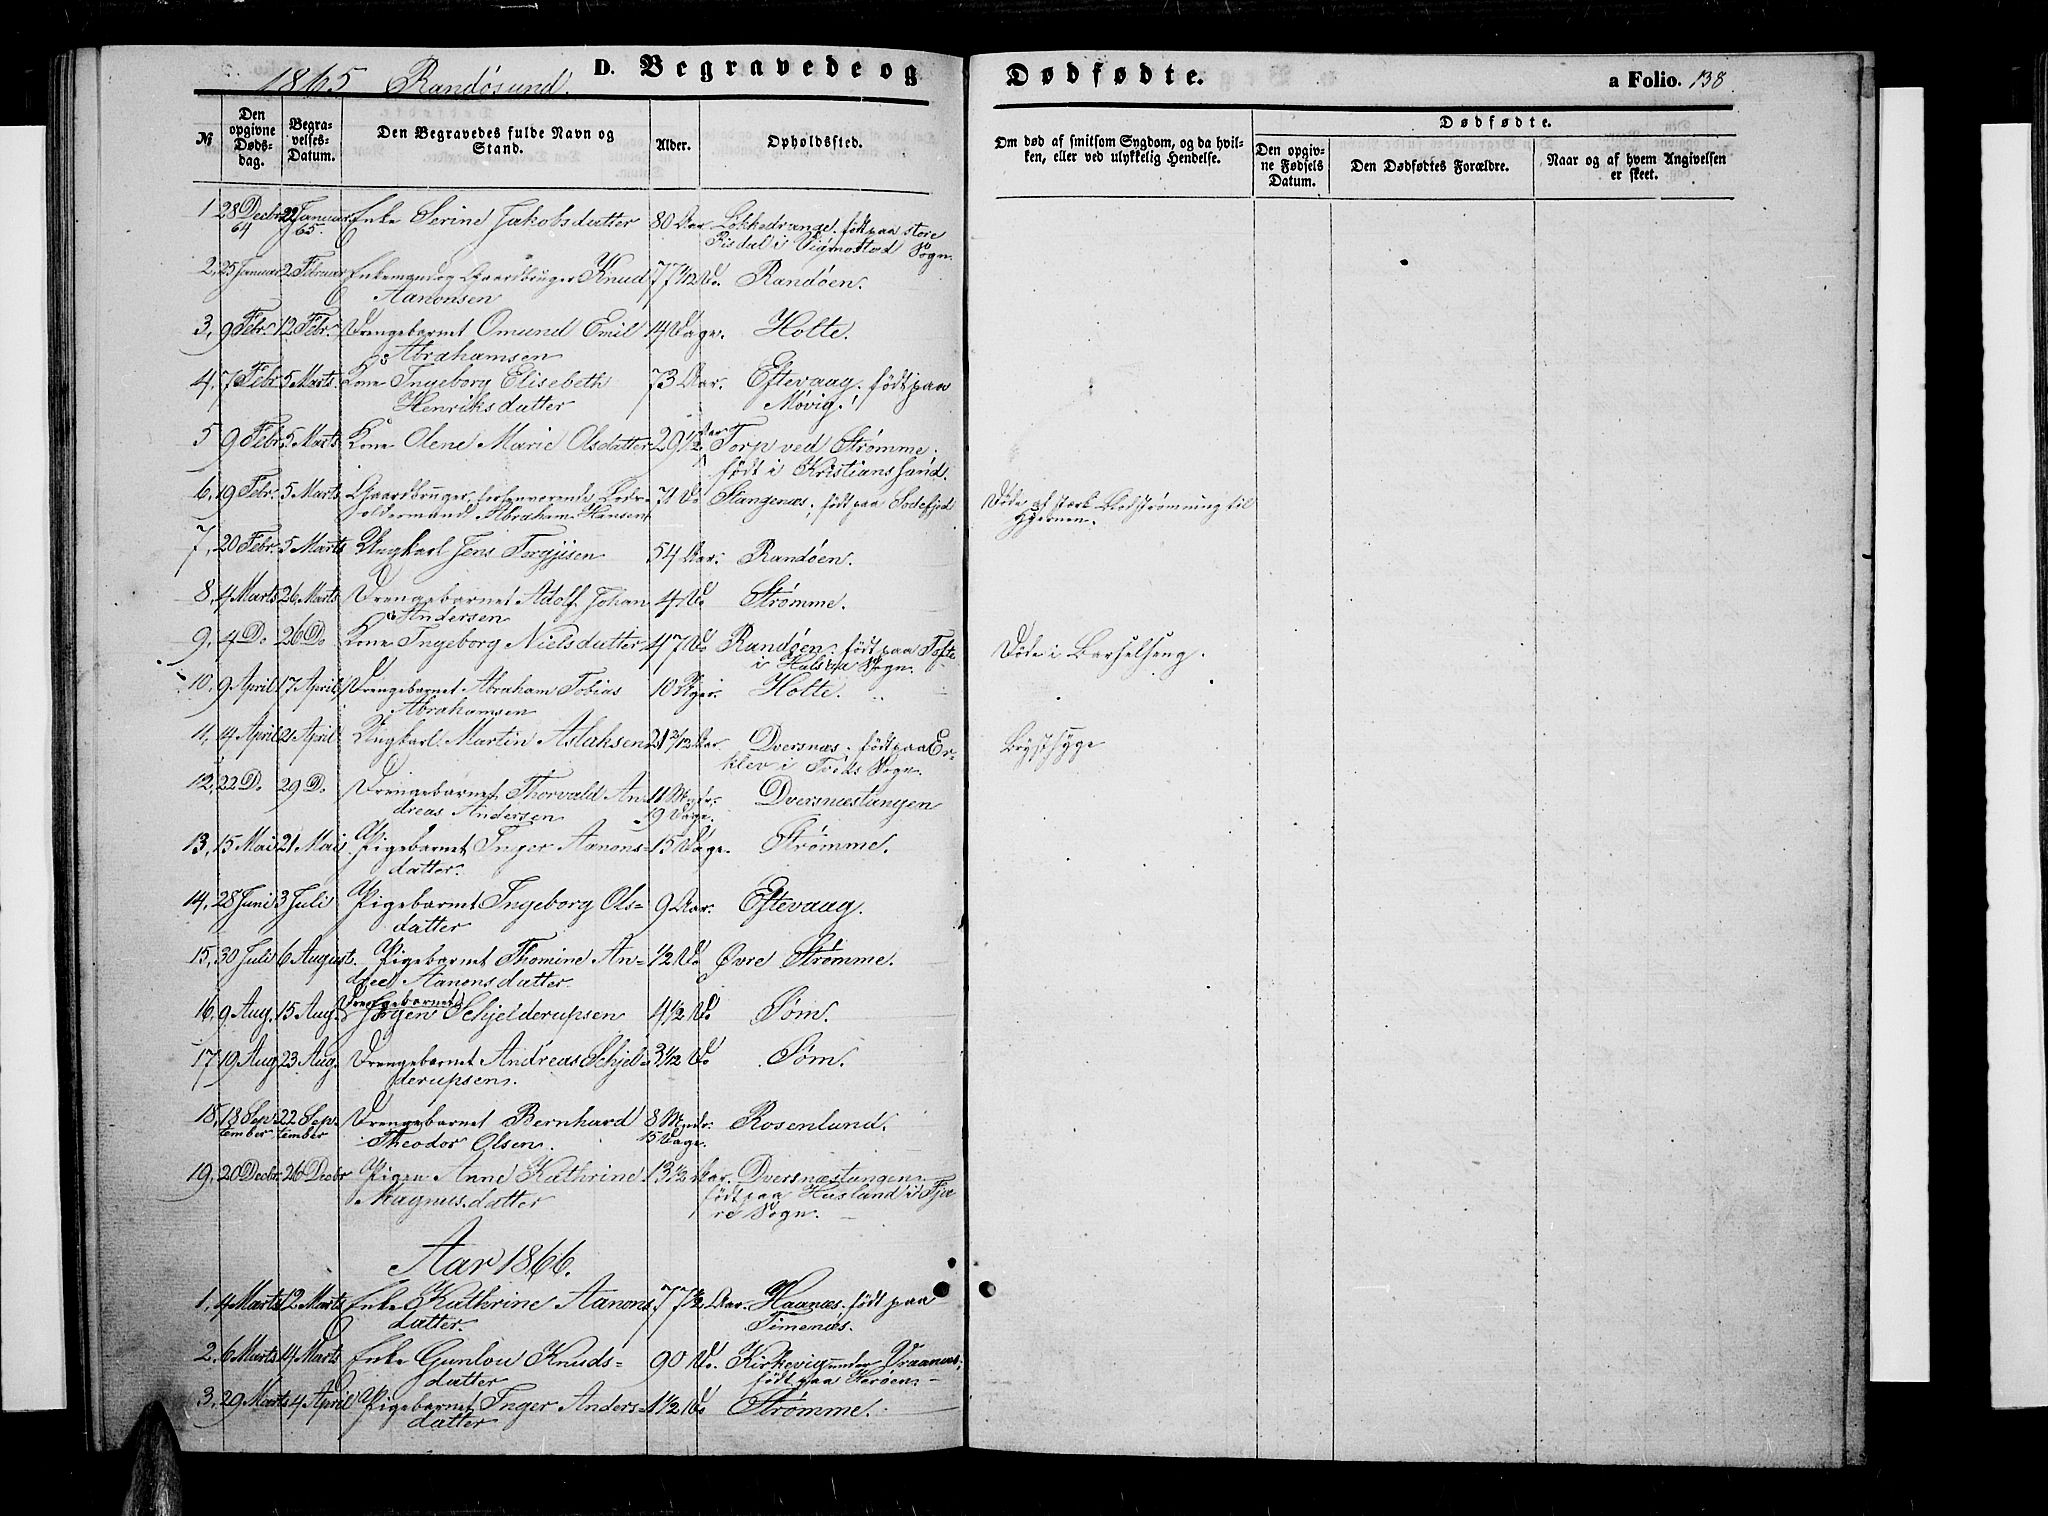 1865 Randøsund. D. Begravede og Dødfødte. a Folio. 138.
№ Den opgivne Dødsdag. Begravelses-Datum. Den Begravedes fulde Navn og Stand. Alder. Opholdssted. Om død af smitsom Sygdom, og da hvilken, eller ved ulykkelig Hendelse. Dødfødte.
Den opgivne Fødsels Datum. Den Dødfødtes Forældre. Naar og af hvem Angivelsen er skeet.
1, 28 Decbr 64 22 Januar 65. Enke Serine Jakobsdatter 80 Aar Løkkedrange, født paa store
Risdal i Vigmostad Sogn.
2, 25 Januar 2 Februar Enkemand og Gaardbruger Knud 77 1/2 Do. Randøen.
Aanonsen
3, 9 Febr. 12 Febr. Drengebarnet Omund Emil 14 Dage. Holte.
Abrahamsen
4, 7 Febr 5 Marts. Kone Ingeborg Elisebeth 73 Aar. Eftevaag, født paa
Henriksdatter Møvig.
5 9 Febr. 5 Marts Kone Olene Marie Olsdatter 29 1/2 Aar Torp ved Strømme,
født i Kristianssand.
6, 19 Febr. 5 Marts Gaardbruger, forhenværende Lods-
oldermand Abraham Hansen 71 Do Stangenæs, født paa Dødefjed Døde af stærk Blodstrømning til
Hjernen.
7, 20 Febr. 5 Marts Ungkarl Jens Torgjisen 54 Aar. Randøen.
8, 4 Marts 26 Marts Drengebarnet Adolf Johan 4 Do Strømme.
Andersen
9, 4 D. 26 D. Kone Ingeborg Nielsdatter 47 Do Randøen, født paa Tofte Døde i Barselseng.
i Sogn.
10, 9 April 17 April Drengebarnet Abraham Tobias 10 Holte.
Abrahamsen
11, 4 April 21 April Ungkarl Martin Aslaksen 21 2/12 Aar Dversnæs, født paa Er- Brystsyge
klev i Sogn.
12, 22 D. 29 D. Drengebarnet Thorvald An- 11 Mndr.
dreas Andersen 19 Dage. Dversnæstangen
13, 15 Mai 21 Mai Pigebarnet Inger Aanons- 15 Dage. Strømme.
datter.
14, 28 Juni 3 Juli Pigebarnet Ingeborg Ols- 9 Aar. Eftevaag.
datter
15, 30 Juli 6 August. Pigebarnet Thomine An- 1/2 Do Øvre Strømme.
drea Aanonsdatter.
16, 9 Aug. 15 Aug. Drengebarnet Jørgen Schjelderupsen 4 1/2 Do Søm.
17, 19 Aug 23 Aug. Drengebarnet Andreas Schjel- 3 1/2 Do Søm.
derupsen.
18, 18 September 22 September Drengebarnet Bernhard 8 Mndr. Rosenlund.
Theodor Olsen. 15 Dage.
19, 20 Decbr. 26 Decbr Pigen Anne Kathrine 13 1/2 Aar. Dversnæstangen,
Magnusdatter født paa Husland i Fjæ-
re Sogn.
Aar 1866.
1, 4 Marts 12 Marts Enke Kathrine Aanons 77 1/2 Aar. Haanæs, født paa
datter. Timenæs.
2, 6 Marts 14 Marts Enke Gunlou Knuds- 90 Do. Kirkevig under Vraanæs,
datter født paa Herøen.
3, 29 Marts 4 April Pigebarnet Inger Anders- 1 1/2 Do Strømme.
datter